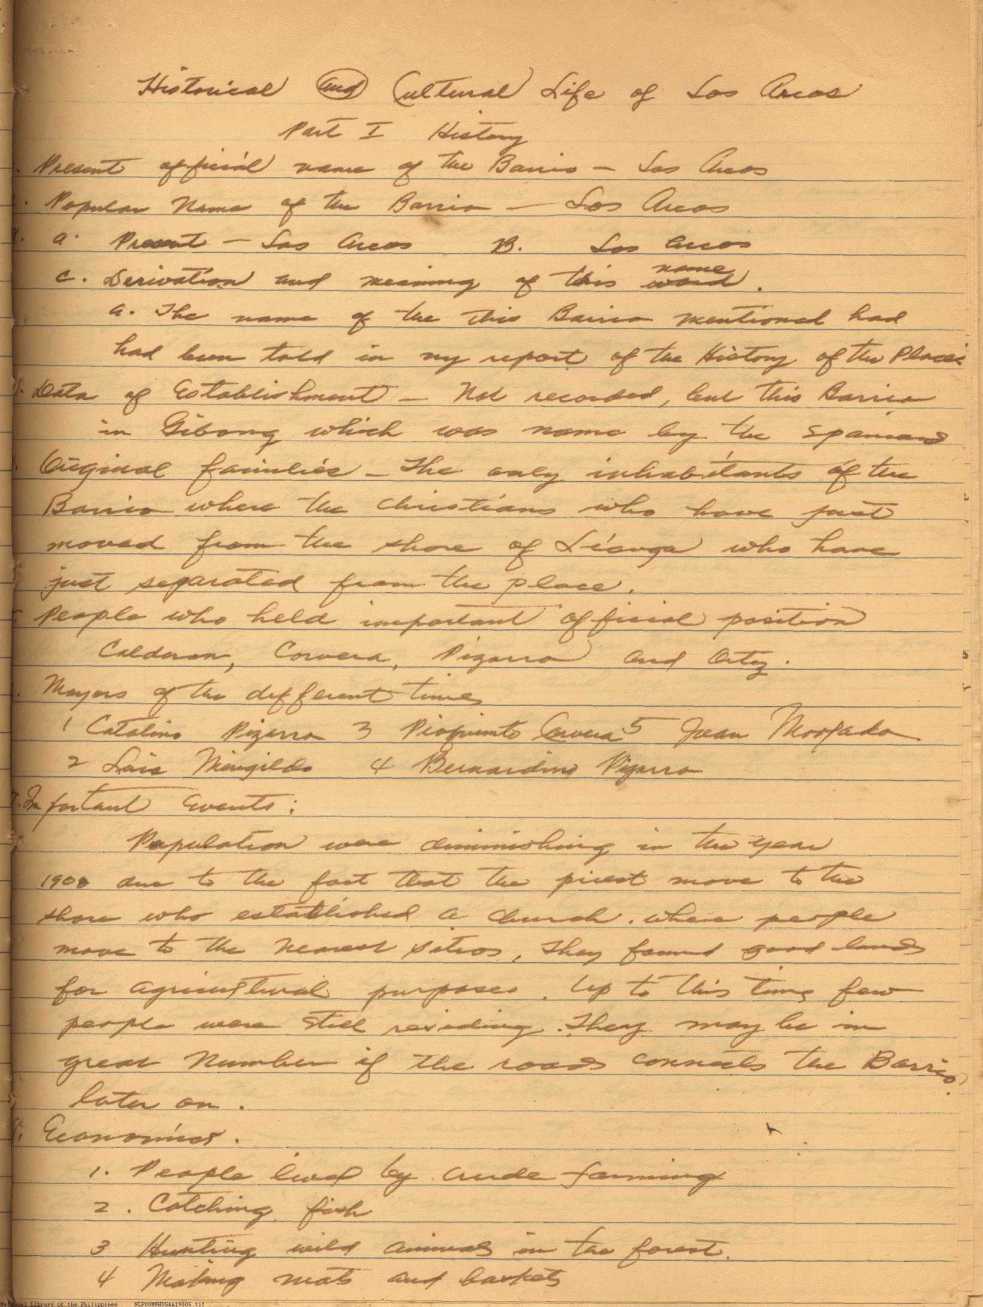 Historical and Cultural Life of Los Arcos
Part I History
Present official name of the Barrio - Los Arcos
Popular Name of the Barrio - Los Arcos
a. Present - Los Arcos B. Los Arcos
c. Derivation and meaning of this word name.
a. The name of the this Barrio mentioned had
had been told in my report of the History of the Place
Data of Establishment - Not recorded, but this Barrio
in Gibong which was name by the Spaniard
Original families - The only inhabitants of the
Barrio where the Christians who have just
moved from the shore of Lianga who have
just separated from the place.
People who held important official position
Calderon, Corvera, Pizarro and Ortiz.
Mayors of the different times
1 Catalino Pizarro 3 Pioquinto Corvera 5 Juan Morgado
2 Luis Minigildo 4 Bernardino Pizarro
7. Important Events:
Population were diminishing in the year
1900 due to the fact that the priest move to the
shore who established a church. where people
move to the nearest sitios, they found good lands
for agricultural purposes. Up to this time few
people were still residing. They may be in
great number if the roads connects the Barrio
later on.
8. Economics.
1. People lived by crude farming
2. Catching fish
3 Hunting wild animals in the forest.
4 Making mats and baskets
National Library of the Philippines